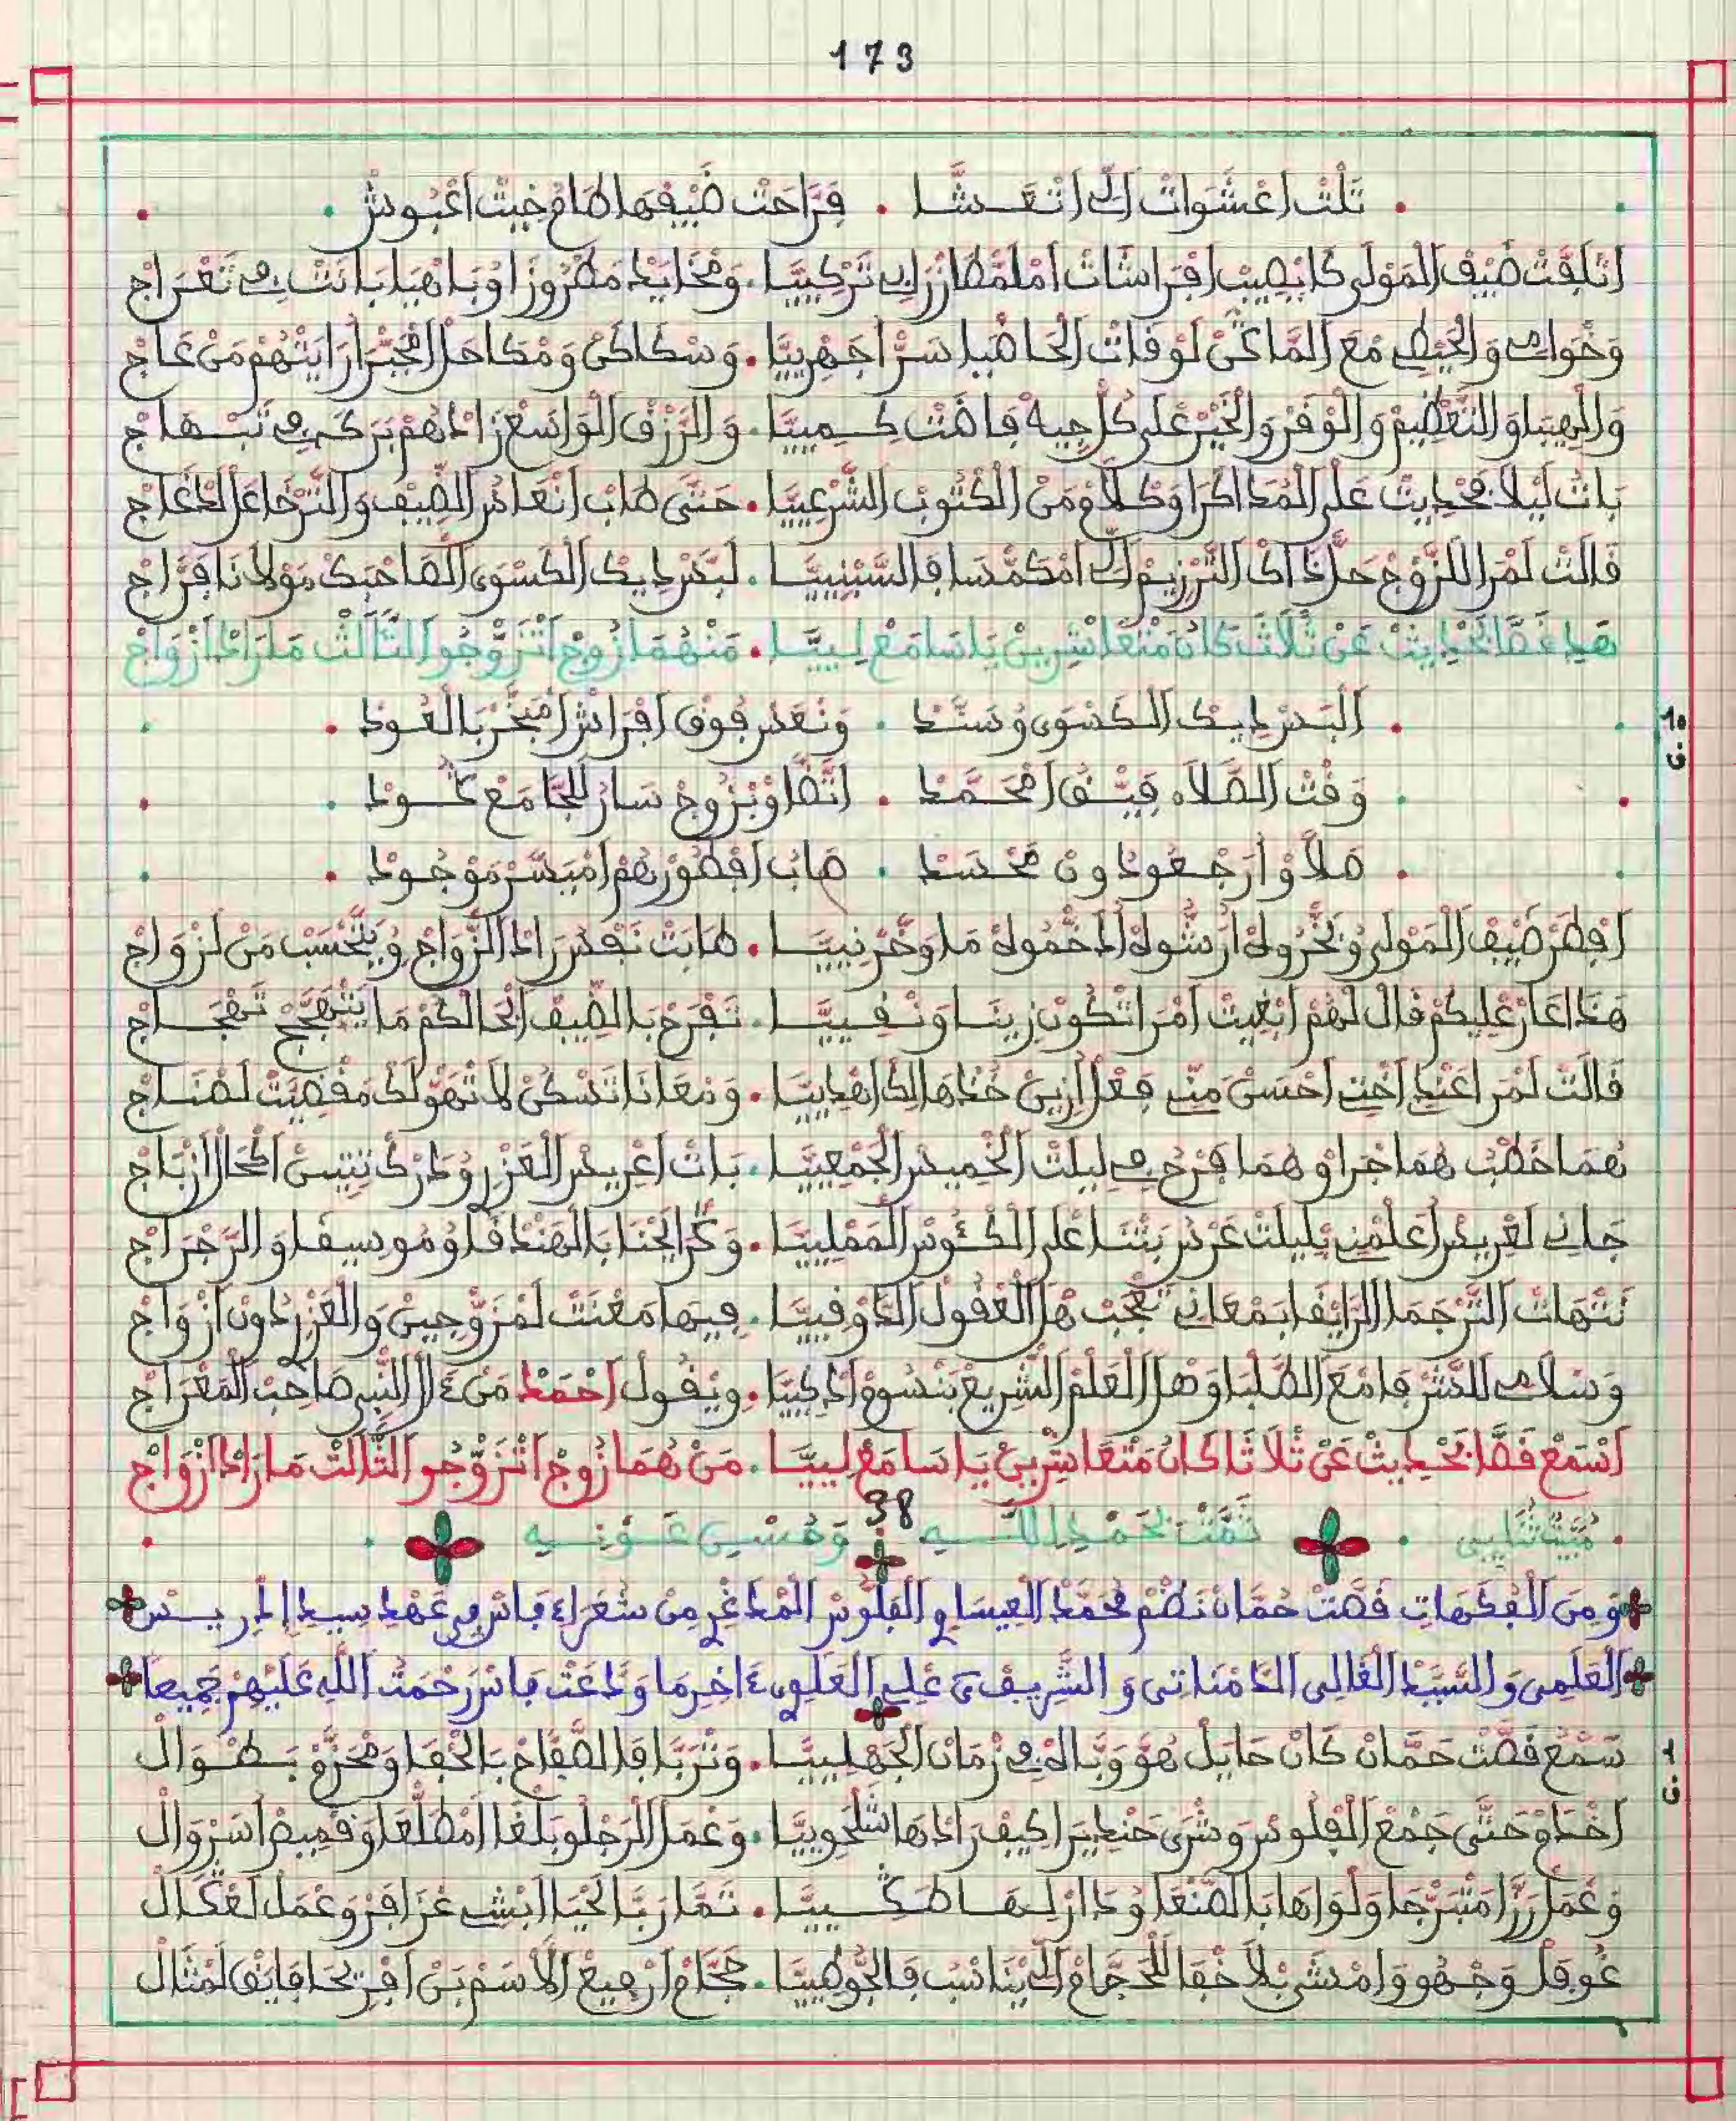 173
تَلْتْ اعْشَوَاتْ اللِّي اتْعَشَّا . فَرَاحَتْ ضَيْفْهَا طَامْ خِيتْ اغْبُوشْ .
اتْلَقَّتْ ضَيْفْ المَوْلَى كَا يْصِيبْ افْرَاشَاتْ امْلَمَّطَا زْرَابِي تَرْكِيَّا . وَمْخَايَدْ مَطْرُوزَا وُبَاهْيَا بَانَتْ فِي تَغْرَاجْ
وَخْوَامِي وَالْحَيْطِي مْعَ المَاعَنْ لَوْقَاتْ الْحَاضْيَا سَرّْ اجَهْرِيَّا . وَسْكَاكَنْ وَمْكَاحَلْ المْجَبَّرْ ارَايَتْهُمْ مَنْ عَاجْ
وَالْهِيبَا وَالتَّعْظِيمْ وَالْوَفْرْ وَالْخَيْرْ عَلَى كُلّْ جِيهَ فَاضَتْ كَمِيَّا . وَالرَّزْقْ الْوَاسَعْ زَادْهُمْ بَرَكَ فِي تَبْهَاجْ
بَاتْ لَيْلَا فْحْدِيتْ عَلَى الْمْدَاكْرَا وَكْلَامْ مَنْ الْكْتُوبْ الشَّرْعِيَّا . حَتَّى طَابْ انْعَاسْ الضِّيفْ وَالتَّرْخَا عَلْ ادْغَاجْ
قَالَتْ لَمْرَا للزُّوجْ حَلّْ دَاكْ التَّرْزِيمْ اللِّي امْكَمّْسَا فَالسَّبْنِيَّا . لَبَّسْ دِيكْ الْكَسْوَى الصَاحْبَكْ مَوْلَانَا فَرَّاجْ
هَدِ قَصَّا بْحْدِيتْ عَنْ ثْلَاثَ كَانُ مَتْعَاشْرِينْ يَا سَامَعْ لِيَّا . مَنْهُمَا زُوجْ اتْزَوّْجُو الثَّالَثْ مَا رَادْ ازْوَاجْ
10
ف
. الْبَسْ دِيكْ الْكَسْوَى وُسَنَّدْ . وَنْعَسْ فُوقْ افْرَاشْ امْبَخَّرْ بَالْعُودْ .
. وَقْتْ الصَّلَاهْ فَيَّقْ امْحَمَّدْ . اتْضَاوْ بْزُوجْ سَارْ الْجَامَعْ گُودْ .
. صَلَّاوْ ارَجْعُو دُونْ مَحْسَدْ . صَابُ افْطُورْهُمْ امْيَسَّرْ مَوْجُودْ .
افْطَرْ ضَيْفْ الْمَوْلَى وُبَخّْرُوهْ ارْشُّوهْ الدَخْمُوهْ مَاوَخَّرْ نِيَّا . طَابَتْ نَفْسُ رَادْ الزّْوَاجْ وُيَتْحْسَبْ مَنْ لَزْوَاجْ
هَذَا عَارْ عْلِيكُمْ قَالْ لَهُمْ ابْغِيتْ امْرَا تْكُونْ زِينَا وَنْقِيَّا . تَفْرَحْ بَالضِّيفْ ابْحَالْكُمْ مَا يَتْهَجَّجْ تَهْجَاجْ
قَالَتْ لَمْرَا عَنْدِي اخْتِي احْسَنْ مَنِّي فِعْلْ ازِينْ خَدْهَا لَكْ اهْدِيَّا . وَمْعَانَا تَسْكُنْ لَا تْهَوّْلَكْ مَقْصِيَّتْ لَصْنَاجْ
هُمَا خَطْبُ هُمَا جْرَاوْ هُمَا فَرْحُ فِي لِيلَتْ الْخْمِيسْ الْجَمْعِيَّا . بَاتْ اعْرِيسْ الْعَزْرِي وَدَرْكْ تِيتِينْ الْحَالْ ازْبَاجْ
جَانِي لَعْرِيسْ اعْلَمْنِي بْلِيلَتْ عَرْسُ بَتْنَا عْلَى الْكْئُوسْ الْمَمْلِيَّا . وَكْرَا لْجْنَا بَالْهَنْدْقَا وُمُوسِيقَا وَالرَّجْرَاجْ
نْتْهَاتْ التَّرْجَمَا الرَّايْقَا بَمْعَانِي تَعْجَبْ هَلْ الْعْقُولْ الدَّوْقِيَّا . فِيهَا مَعْنَتْ لَمْزَوّْجِينْ وَالْعَزْرِي دُونْ ازْوَاجْ
وَسْلَامِي للشُّرْفَا مَعَ الطَّلْبَا وَهْلْ الْعَلْمْ الشْرِيعْ بَنْسُومْ ادْكِيَّا . وِيْقُولْ احْمَدْ مَنْ ءَالْ النّْبِي صَاحَبْ الْمَعْرَاجْ
اسْمَعْ قَصَّا بْحْدِيثْ عَنْ ثْلَاثَا كَانُ مَتْعَاشْرِينْ يَا سَامَعْ لِيَّا . مَنْ هُمَا زُوجْ اتْزَوّْجُو الثَّالَثْ مَا رَادْ ازْوَاجْ
38
مَبِيتْ ثْنَايِي . تَمَّتْ بْحَمْدِ اللَّـهِ وَحُسْنِ عَوْنِـهِ
وَمِنَ الْفُكَهَاتِ قَصّتْ حَمَّانْ نَظْمْ مُحَمَّدْ الْعِيسَاوِي الْفْلُوسْ الْمْدَغْرِي مِنْ شُعَرَاءِ فَاسْ فِي عَهْدِ سِيدِ إِدْرِيسْ
الْعَلَمِي وَالسَّيِّدْ الْغَالِي الدَّمْنَاتِي وَالشَّرِيفْ بَنْ عْلِي الْعَلَوِي ءَاخِرِ مَا وَدَّعَتْ فَاسْ رَحْمَتُ اللَّهِ عَلَيْهِمْ جَمِيعًا
1
ف
سَمْعْ قَصّتْ حَمَّانْ كَانْ حَايَلْ هُوَ وَبَّاهْ فِي زْمَانْ الْجَهْلِيَّا . وَتْرَبَّا فَالصّْقَاحْ بَالْحْفَا وَمْحَزَّمْ بَطْوَالْ
اخْدَمْ حَتَّى جْمَعْ الْفْلُوسْ وَشْرَى حَنْدِيرَا كِيفْ رَادْهَا شَلْحُوِيَّا . وَعْمَلْ الرَجْلُو بَلْغَا امْطَلّْعَا وَقْمِيصْ اسَرْوَالْ
وَعْمَلْ رَزَّا مْسَرّْجَا وَلْوَاهَا بَالصَّنْعَا وُدَارْ لِيهَا طَگِيَّا . تَمَّارْ بَّا لَحْيَا ابْشِي غْرَافَرْ وَعْمَلْ لَعْكَالْ
غُوفَلْ وَجْهُو وَامْشَى بْلَا خْفَا للْحَجَّامْ اللِّي يْنَاسَبْ فَالْجُوطِيَّا . حَجَّامْ ارْفِيعْ الْاسَمْ بَنْ افْرِيحَا فَايَقْ لَمْثَالْ